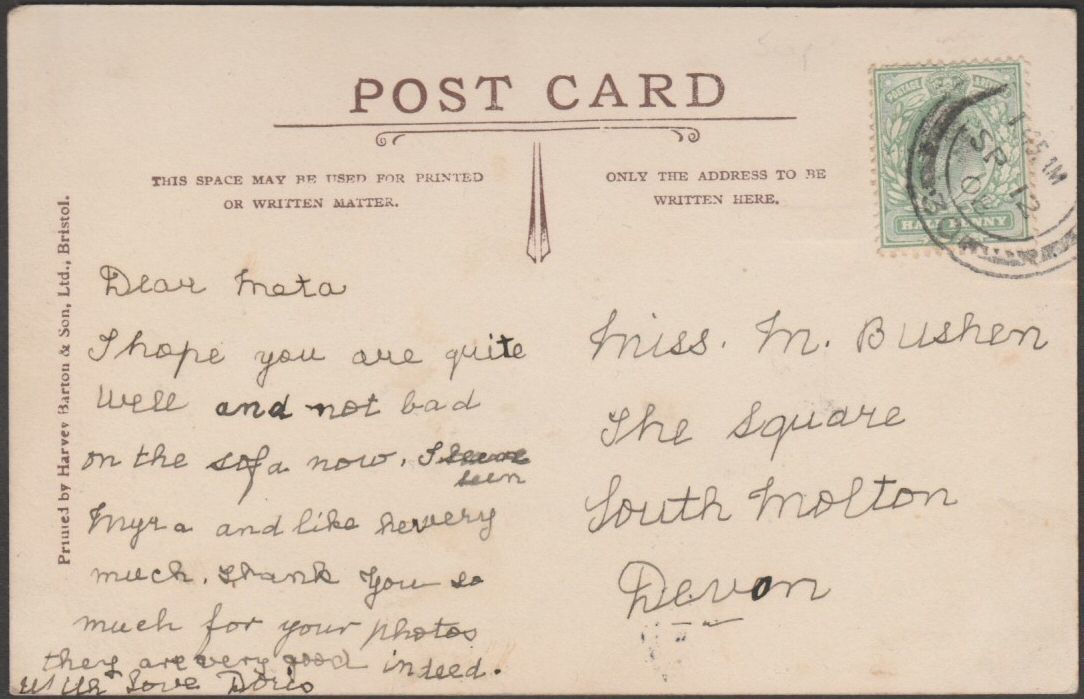 POST CARD
THIS SPACE MAY BE USED FOR PRINTED
OR WRITTEN MATTER.
ONLY THE ADDRESS TO BE
WRITTEN HERE.
POSTAGE
HALF PENNY
SP 12
Printed by Harvey Barton & Son, Ltd., Bristol.
Dear Meta
I hope you are quite
well and not bad
on the sofa now. I
seen
Myra and like her very
much. Thank you so
much for your photos
they are very good indeed.
with Love Doris
Miss. M. Bushen
The Square
South Molton
Devon